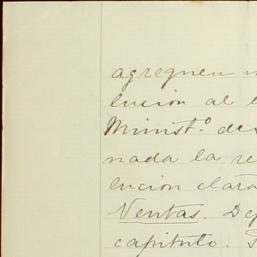 agreguen
lucion al
Minist.º des
nada la re
lucion clara
Ventas. Dep
capitulo.